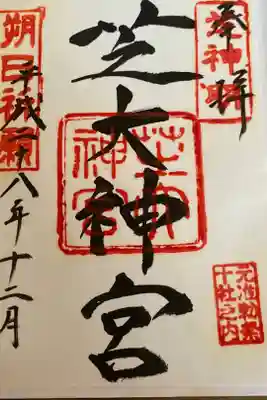 奉拝
元准勅祭
十社之内
芝大神宮
芝大
神宮
朔日祈願
平成二十八年十二月